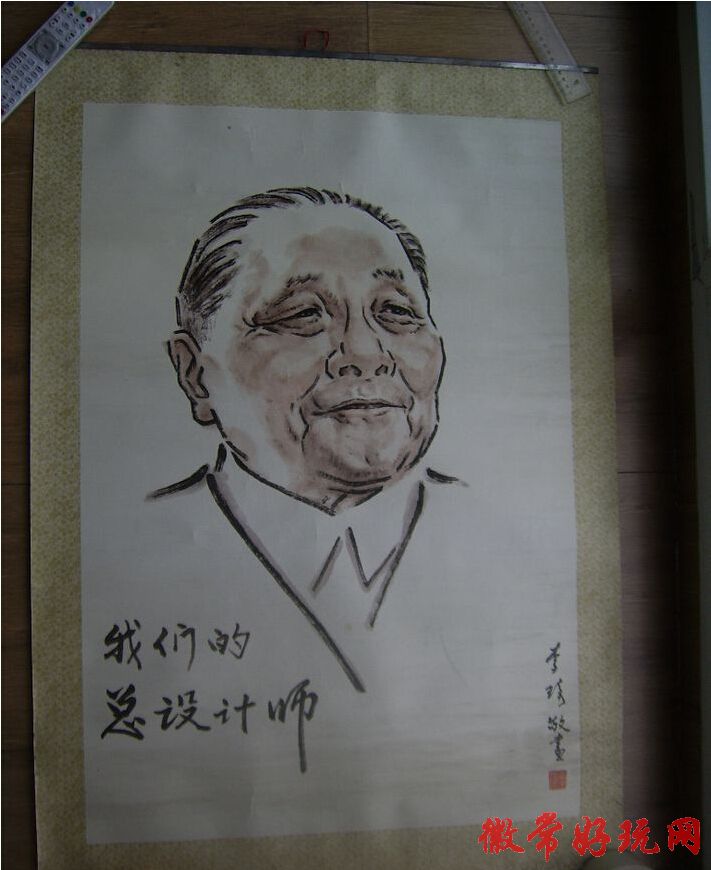 我们的
总设计师
李琦敬画
徽常好玩网